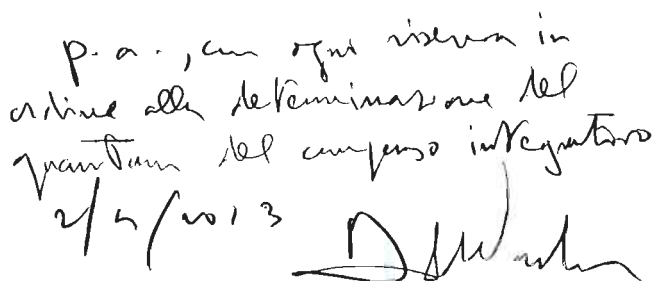 p. a., con ogni riserva in
ordine alla determinazione del
quantum del compenso integrativo
2/4/2013